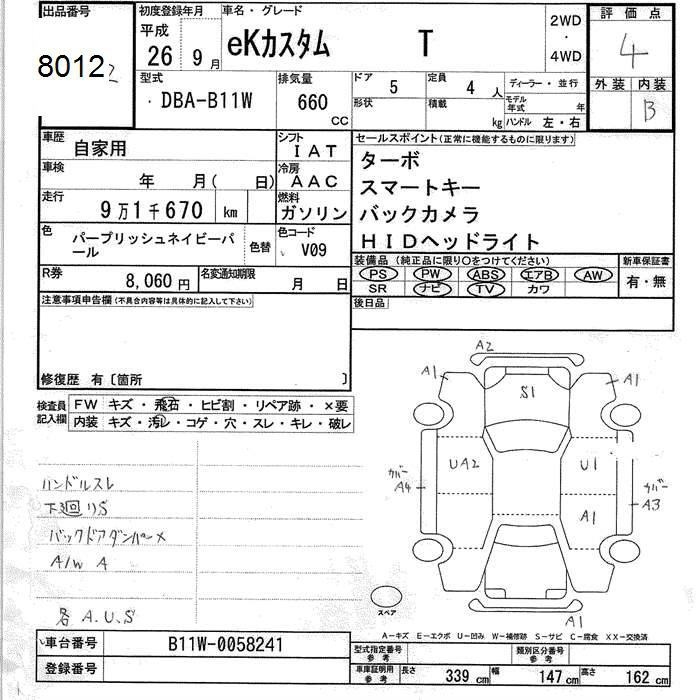 出品番号
8012
初度登録年月 平成 26 9月
車名・グレード eKカスタム T
2WD
・
4WD
評価点
4
外装 内装
B
型式 DBA-B11W
排気量 660 CC
ドア 5
定員 4 人
ディーラー・並行
形状
積載 kg
モデル年式 年
ハンドル 左・右
車歴 自家用
シフト IAT
車検 年 月(日)
冷房 AAC
走行 9万1千670 km
燃料 ガソリン
色 パープリッシュネイビーパール
色替
色コード V09
R券 8,060円
名変通知期限 月 日
セールスポイント(正常に機能するものに限ります)
ターボ
スマートキー
バックカメラ
HIDヘッドライト
装備品(純正品に限り○をつけてください)
PS PW ABS エアB AW
SR ナビ TV カワ
新車保証書
有・無
後日品
注意事項申告欄(不具合内容等は具体的に記入して下さい)
修復歴 有〔箇所 〕
検査員記入欄
FW キズ・飛石・ヒビ割・リペア跡・×要
内装 キズ・汚レ・コゲ・穴・スレ・キレ・破レ
ハンドルスレ
下廻りS
バックドアダンパー×
A/W A
各 A.U.S
A2
A1
S1
A1
UA2
U1
カバー A4
カバー A3
A1
A1
スペア
A-キズ E-エクボ U-凹み W-補修跡 S-サビ C-腐食 XX-交換済
車台番号 B11W-0058241
登録番号
型式指定番号 参考
類別区分番号 参考
車庫証明用 参考
長さ 339 cm
幅 147 cm
高さ 162 cm